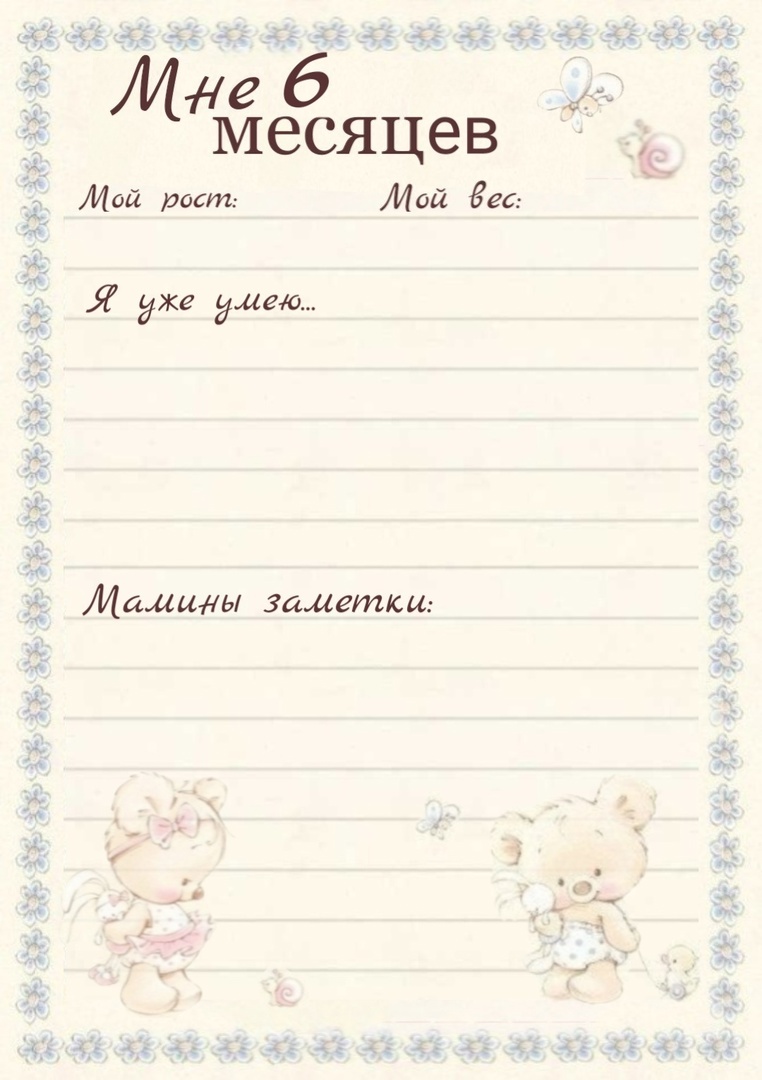 Мне 6
месяцев
Мой рост: Мой вес:
Я уже умею...
Мамины заметки: